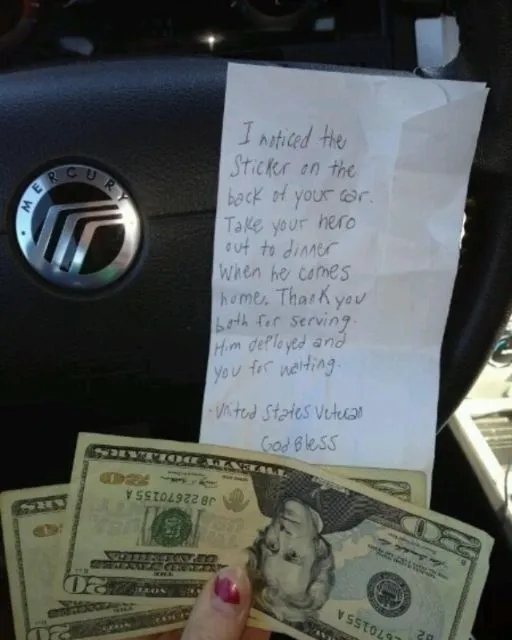 MERCURY
I noticed the
Sticker on the
back of your car.
Take your hero
out to dinner
when he comes
home. Thank you
both for serving.
Him deployed and
you for waiting.
-United States Veteran
God Bless
TWENTY DOLLARS
20
JB 22670155 A
20
JB 22670155 A